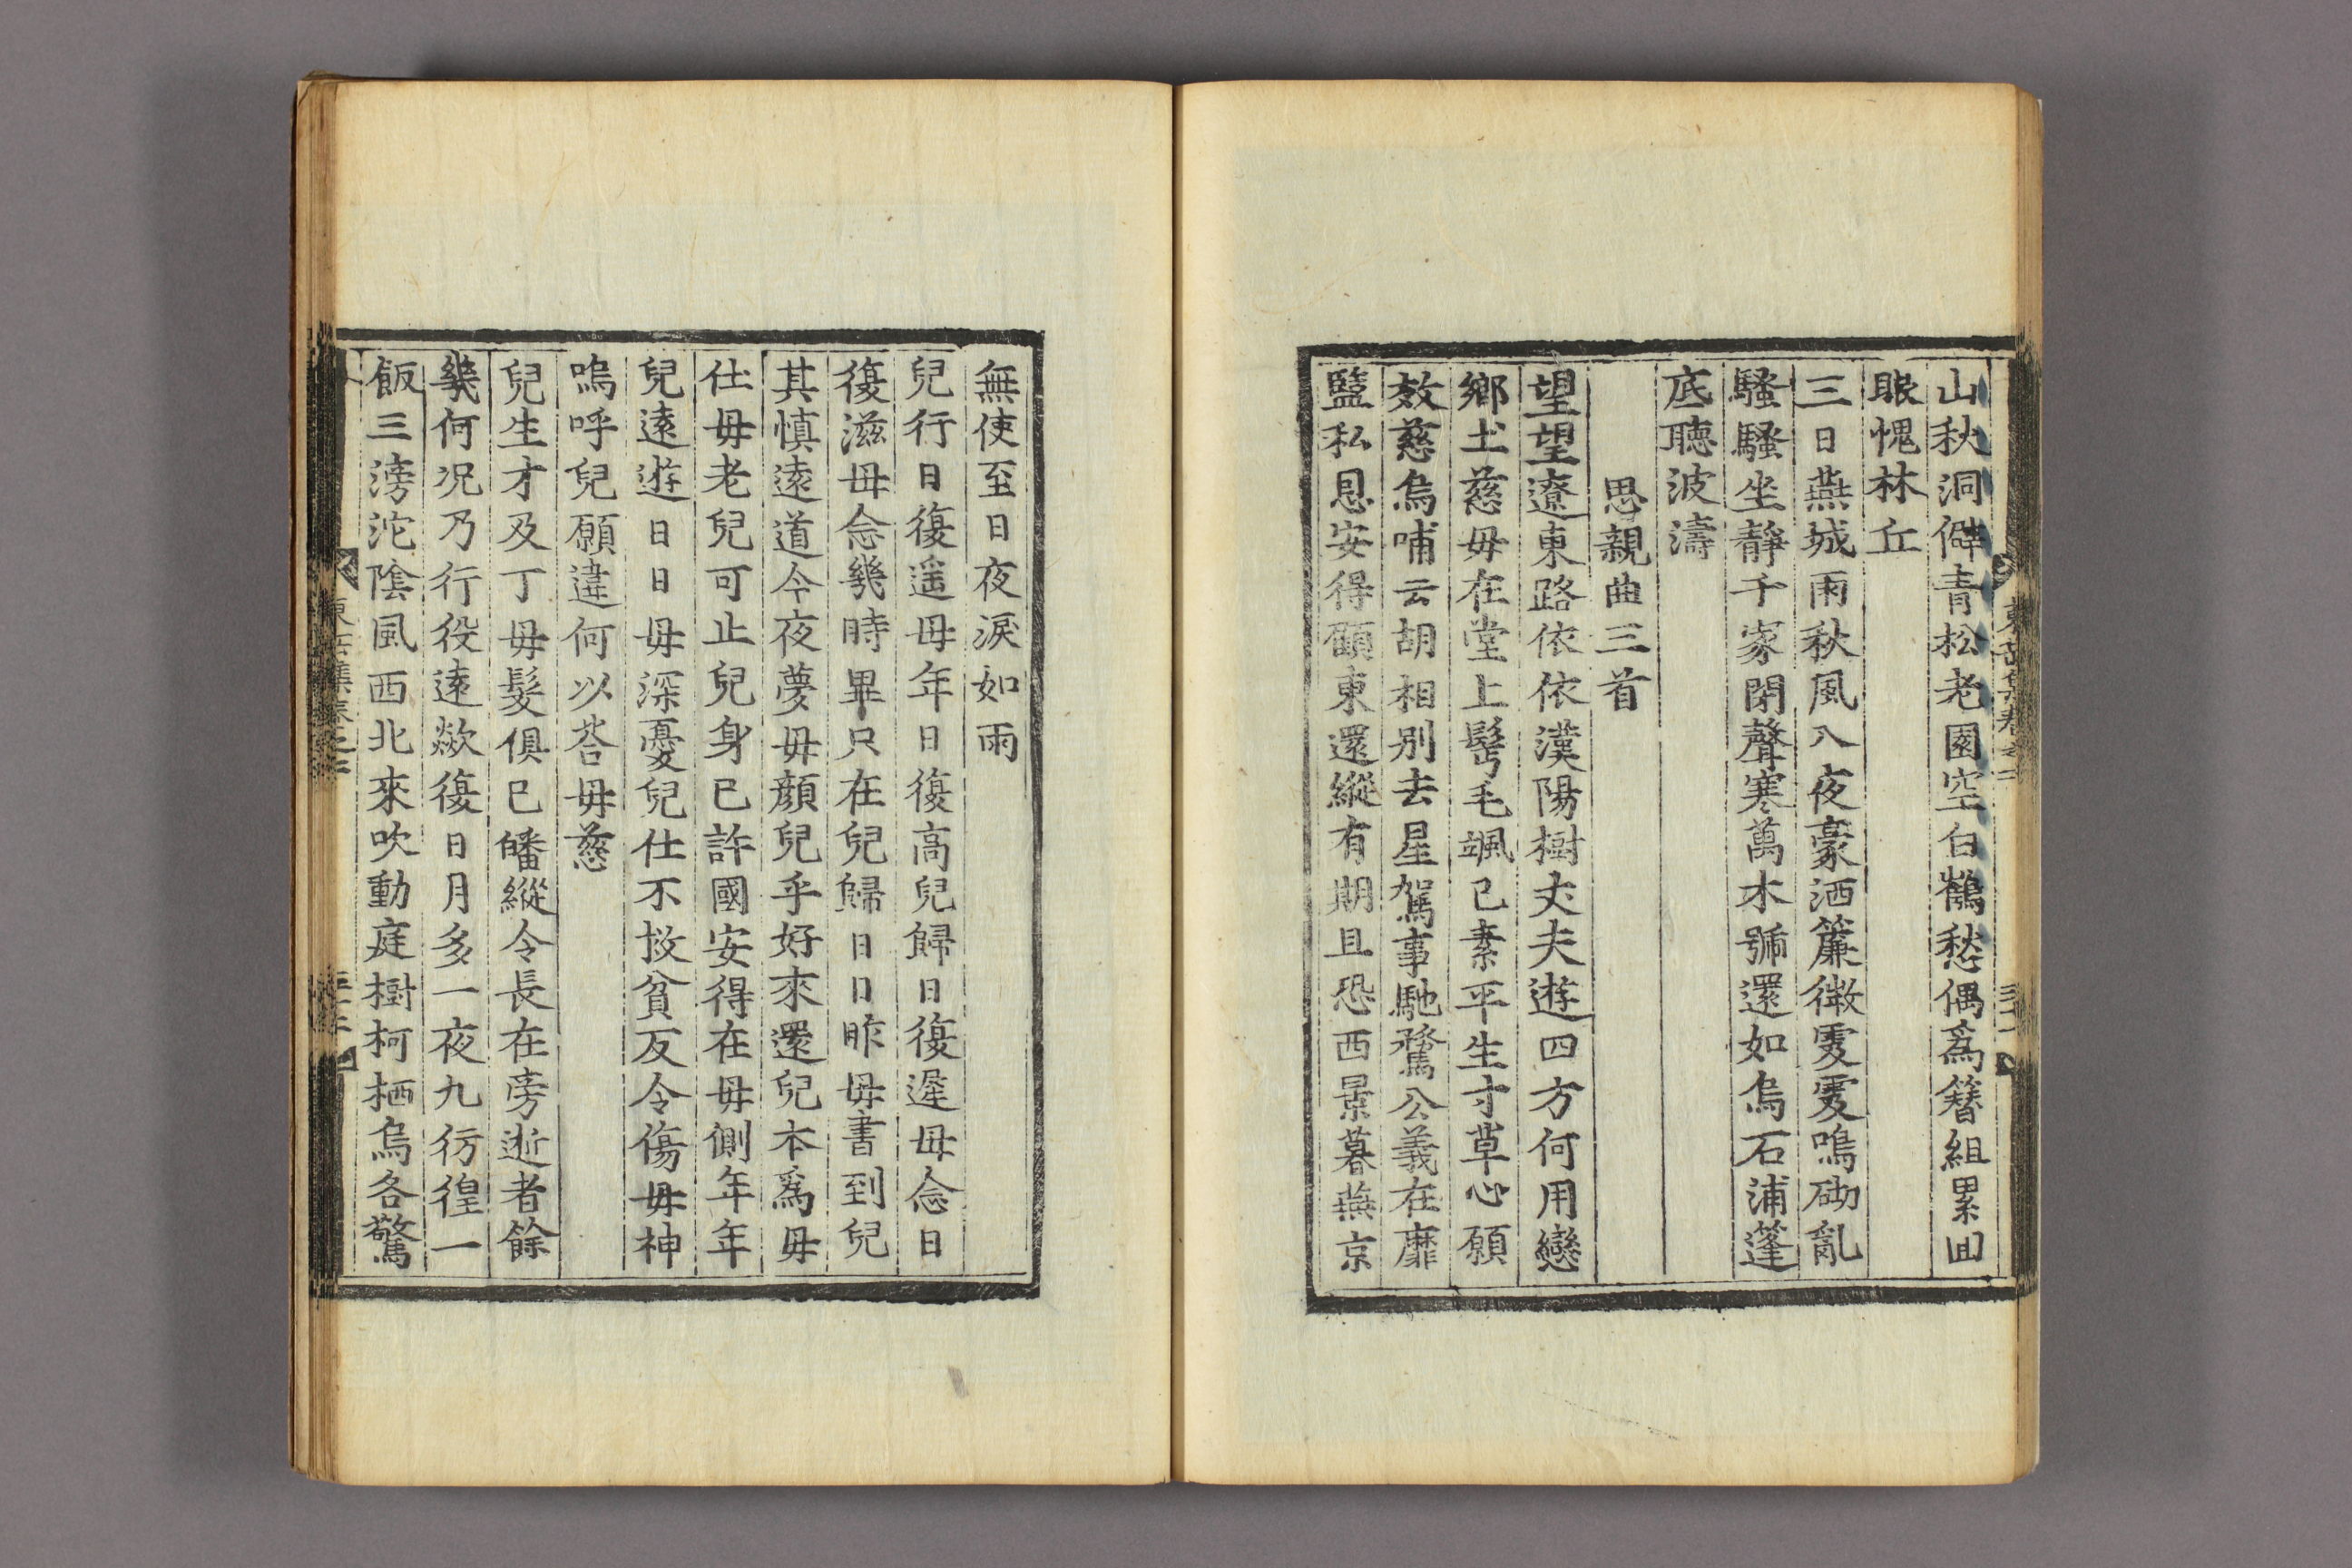 山秋洞僻青松老園空白鶴愁偶爲簪組累回
眼愧林丘
三日燕城雨秋風入夜豪洒簾微雯雯鳴砌亂
騷騷坐靜千家閉聲寒萬木號還如烏石浦篷
底聴波濤
思親曲三首
望望遼東路依依漢陽樹丈夫遊四方何用戀
鄉土慈母在堂上髩毛颯已素平生寸草心願
效慈烏哺云胡相別去星駕事馳騖公義在靡
盬私恩安得顧東還縱有期且恐西景暮燕京
無使至日夜淚如雨
兒行日復遥母年日復高兒歸日復遲母念日
復滋母念幾時畢只在兒歸日日昨母書到兒
其慎遠道今夜夢母顔兒乎好來還兒本爲母
仕母老兒可止兒身已許國安得在母側年年
兒遠遊日日母深憂兒仕不救貧反令傷母神
嗚呼兒願違何以荅母慈
兒生才及丁母髮俱已皤縱令長在旁逝者餘
幾何况乃行役遠歘復日月多一夜九彷徨一
飯三滂沱陰風西北來吹動庭樹柯栖烏各驚